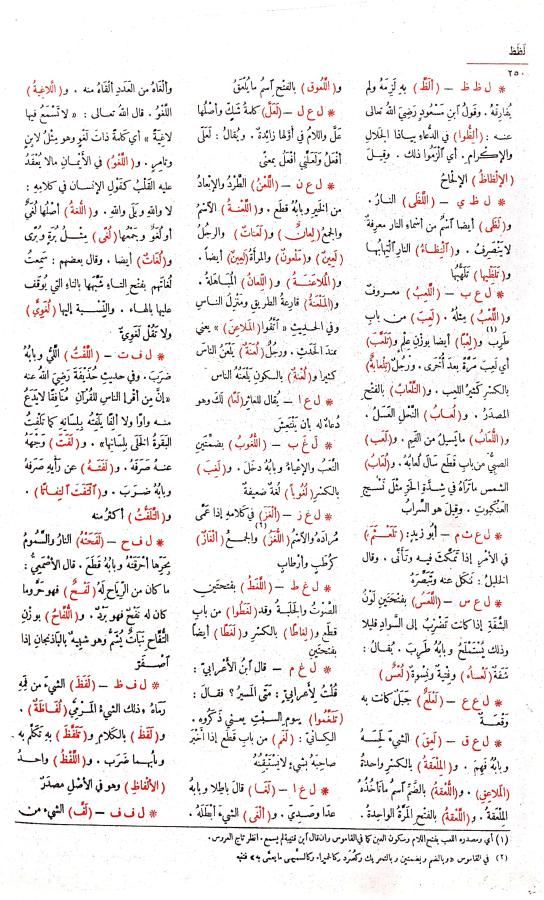 لَظَظَ
٢٥٠
* ل ظ ظ – (أَلَظَّ) بِهِ لَزِمَهُ ولم
يُفَارِقْهُ . وقَولُ ابنِ مَسْعودٍ رَضِيَ اللهُ تعالى
عنه : (أَلِظُّوا) في الدُّعَاءِ بِيَاذا الجَلالِ
والإِكْرام . أي الْزَمُوا ذلك . وقيلَ
(الإِلْظاظُ) الإِلْحاحُ
* ل ظ ي – (اللَّظَى) النارُ .
و(لَظَى) أيضا اسمٌ من أسماءِ النار معرفةٌ
لا يَنْصَرِفُ . و(الْتِظاءُ) النارِ الْتِهابُها
و(تَلَظِّيها) تَلَهُّبُها
* ل ع ب – (اللَّعِبُ) معروفٌ
و(اللَّعْبُ) مثلُهُ . (لَعِبَ) من بابِ
طَرِبَ و(لِعْبًا) (١) أيضا بوزنِ عِلْمٍ و(تَلَعَّبَ)
أي لَعِبَ مَرَّةً بعدَ أُخْرَى . ورَجُلٌ (تِلْعابَةٌ)
بالكسرِ كَثيرُ اللَّعِبِ . و(التَّلْعابُ) بالفتحِ
المصدَرُ . و(لُعابُ) النَّحْلِ العَسَلُ .
و(اللُّعَابُ) ما يَسيلُ من الفَمِ . و(لَعَبَ)
الصبيُّ من بابِ قَطَعَ سَالَ لُعَابُهُ . و(لُعَابُ)
الشمسِ ما تَرَاهُ في شِدَّةِ الحَرِّ مِثْلَ نَسْجِ
العنكبوتِ . وقيلَ هو السَّرابُ
* ل ع ث م – أبو زَيدٍ : (تَلَعْثَمَ)
في الأمْرِ إذا تَمَكَّثَ فيه وتَأَنَّى . وقال
الخليلُ : نَكَلَ عنه وتَبَصَّرَهُ
* ل ع س – (اللَّعَسُ) بفتحَتَينِ لَوْنُ
الشَّفَةِ إذا كانت تَضْرِبُ إلى السَّوادِ قليلا
وذلك يُسْتَمْلَحُ وبابُهُ طَرِبَ . يُقالُ :
شَفَةٌ (لَعْساءُ) وفِتْيَةٌ ونِسوةٌ (لُعْسٌ)
* ل ع ع – (لَعْلَعٌ) جَبَلٌ كانت به
وَقْعَةٌ
* ل ع ق – (لَعِقَ) الشيءَ لَحِسَهُ
وبابُهُ فَهِمَ . و(المِلْعَقَةُ) بالكَسْرِ واحدةُ
(المَلاعِقِ) . و(اللُّعْقَةُ) بالضمِّ اسمُ ما تأخُذُهُ
المِلْعَقَةُ . و(اللَّعْقَةُ) بالفتحِ المَرَّةُ الواحدةُ .
و(اللَّعُوقُ) بالفتحِ اسمُ ما يُلْعَقُ
* ل ع ل – (لَعَلَّ) كلمةُ شَكٍّ وأصلُها
عَلَّ واللامُ في أوَّلِها زائدةٌ . ويُقالُ : لَعَلِّي
أفعَلُ ولَعَلَّنِي أفعَلُ بمعنًى
* ل ع ن – (اللَّعْنُ) الطَّرْدُ والإبْعادُ
من الخَيرِ وبابُهُ قَطَعَ . و(اللَّعْنَةُ) الاسمُ
والجمعُ (لِعانٌ) و(لَعَنَاتٌ) والرجُلُ
(لَعِينٌ) و(مَلْعُونٌ) والمرأةُ (لَعِينٌ) أيضا .
و(المُلاعَنَةُ) و(اللِّعانُ) المُباهَلَةُ .
و(المَلْعَنَةُ) قارِعةُ الطريقِ ومَنْزِلُ الناسِ
وفي الحديثِ «اتَّقُوا (المَلاعِنَ)» يعني
عند الحَدَثِ . ورجُلٌ (لُعَنَةٌ) يَلْعَنُ الناسَ
كثيرا و(لُعْنَةٌ) بالسكونِ يَلْعَنُهُ الناسُ
* ل ع ا – يُقالُ للعاثِرِ (لَعًا) لَكَ وهو
دُعاءٌ له بأن يَنْتَعِشَ
* ل غ ب – (اللُّغُوبُ) بضمَّتينِ
التَّعَبُ والإعْياءُ وبابُهُ دخَلَ . و(لَغِبَ)
بالكسرِ (لُغُوباً) لُغَةٌ ضعيفةٌ
* ل غ ز – (أَلْغَزَ) في كلامِهِ إذا عَمَّى
مُرادَهُ والاسمُ (اللُّغَزُ) (٢) والجمعُ (أَلْغازٌ)
كرُطَبٍ وأَرْطابٍ
* ل غ ط – (اللَّغَطُ) بفتحتينِ
الصَّوْتُ والجَلَبةُ وقد (لَغَطُوا) من بابِ
قطَعَ و(لِغاطًا) بالكسرِ و(لَغَطًا) أيضاً
بفتحتين
* ل غ م – قال ابنُ الأعرابيِّ :
قُلْتُ لِأعرابيٍّ : مَتَى المَسيرُ ؟ فقالَ :
(تَلَغَّمُوا) يومَ السبتِ يعني ذَكَرُوه .
الكسائيّ : (لَغَمَ) من بابِ قطَعَ إذا أخْبَرَ
صاحِبَهُ بشيءٍ لا يَسْتَيْقِنُهُ
* ل غ ا – (لَغَا) قالَ باطِلا وبابُهُ
عدَا وصَدِيَ . و(أَلْغَى) الشيءَ أبْطَلَهُ .
وأَلْغاهُ من العَدَدِ أَلْقاهُ منه . و(اللَّاغِيَةُ)
اللَّغْوُ . قال اللهُ تعالى : « لا تَسْمَعُ فيها
لاغِيةً » أي كلمةً ذاتَ لَغْوٍ وهو مثلُ لابِنٍ
وتامِرٍ . و(اللَّغْوُ) في الأيْمانِ مالا يَعْقِدُ
عليه القَلْبُ كقَولِ الإنسان في كلامِهِ :
لا واللهِ وبَلَى واللهِ . و(اللُّغَةُ) أصلُها لُغَيٌ
أو لُغَوٌ وجَمْعُها (لُغًى) مِثْلُ بُرَةٍ وبُرًى
و(لُغَاتٌ) أيضا . وقال بعضُهم : سَمِعتُ
لُغَاتَهم بفتحِ التاءِ شَبَّهَها بالتاءِ التي يُوقَفُ
عليها بالهاءِ . والنِّسبةُ إليها (لُغَوِيٌّ)
ولا تَقُل لَغَوِيٌّ
* ل ف ت – (اللَّفْتُ) اللَّيُّ وبابُهُ
ضرَبَ . وفي حديثِ حُذَيْفةَ رَضِيَ اللهُ عنه
«إنَّ مِنْ أقْرَإ الناسِ للقُرآنِ مُنافِقًا لا يَدَعُ
منه واوًا ولا ألِفًا يَلْفِتُهُ بلِسانِهِ كما تَلْفِتُ
البَقَرةُ الخَلَى بِلِسانِها» . و(لَفَتَ) وَجْهَهُ
عنه صَرَفَهُ . و(لَفَتَهُ) عن رَأيِهِ صَرَفَهُ
وبابُهُ ضرَبَ . و(الْتَفَتَ الْتِفاتًا) .
و(التَّلَفُّتُ) أكثَرُ منه
* ل ف ح – (لَفَحَتْهُ) النارُ والسَّمُومُ
بحَرِّها أحرَقَتْهُ وبابُهُ قَطَعَ . قال الأصمَعيُّ :
ما كان من الرِّياحِ لَهُ (لَفْحٌ) فهو حَرٌّ وما
كان له نَفْحٌ فهو بَرْدٌ . و(اللُّفَّاحُ) بوزْنِ
التُّفَّاحِ نَبَاتٌ يُشَمُّ وهو شَبيهٌ بالباذنجانِ إذا
اصْفَرَّ
* ل ف ظ – (لَفَظَ) الشيءَ من فَمِهِ
رَمَاهُ وذلك الشيءُ المَرْمِيُّ (لُفَاظَةٌ) .
و(لَفَظَ) بالكلامِ و(تَلَفَّظَ) به تَكَلَّمَ به .
وبابُهما ضَرَبَ . و(اللَّفْظُ) واحدُ
(الألفاظِ) وهو في الأصلِ مصدَرٌ
* ل ف ف – (لَفَّ) الشيءَ من
(١) أي ومصدره اللعب بفتح اللام وسكون العين كما في القاموس وان قال ابن قتيبة لم يسمع . انظر تاج العروس .
(٢) في القاموس «وبالضم وبضمتين وبالتحريك وكصُرَد وكالحُمَيراء وكالسُّمَّيهى ما يعمَّى به» فتنبه